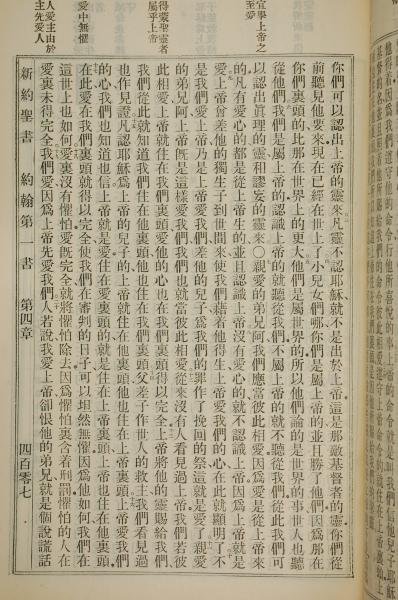 宜學上帝之
至愛
得蒙聖靈者
屬乎上帝
愛中無懼
人愛主由於
主先愛人
你們可以認出上帝的靈來凡靈不認耶穌就不是出於上帝這是那敵基督者的靈你們從
前聽見他要來現在已經在世上了小兒女們哪你們是屬上帝的並且勝了他們因爲那在
你們裏頭的比那在世界上的更大他們是屬世界的所以他們論的是世界的事世人也聽
從他們我們是屬上帝的認識上帝的就聽從我們不屬上帝的就不聽從我們從此我們可
以認出眞理的靈和謬妄的靈來○親愛的弟兄阿我們應當彼此相愛因爲愛是從上帝來
的凡有愛心的都是從上帝生的並且認識上帝沒有愛心的就不認識上帝因爲上帝就是
愛上帝曾差他的獨生子到世間來使我們藉着他得生上帝愛我們的心在此就顯明了不
是我們愛上帝乃是上帝愛我們差他的兒子爲我們的罪作了挽回的祭這就是愛了親愛
的弟兄阿上帝旣是這樣愛我們我們也就當彼此相愛從來沒有人看見過上帝我們若彼
此相愛上帝就住在我們裏頭愛他的心也在我們裏頭得以完全上帝將他的靈賜給我們
我們從此就知道我們住在他裏頭他也住在我們裏頭父差子作世人的救主我們看見過
也作見證凡認耶穌爲上帝的兒子的上帝就住在他裏頭他也住在上帝裏頭上帝愛我們
的心我們也知道也信上帝就是愛住在愛裏頭的就是住在上帝裏頭上帝也住在他裏頭
在此愛在我們裏頭就得以完全使我們在審判的日子可以坦然無懼因爲他如何我們在
這世上也如何愛裏沒有懼怕愛旣完全就將懼怕除去因爲懼怕裏含着刑罰懼怕的人在
愛裏未得完全我們愛因爲上帝先愛我們人若說我愛上帝卻恨他的弟兄就是個說謊話
新約聖書 約翰第一書 第四章 四百零七